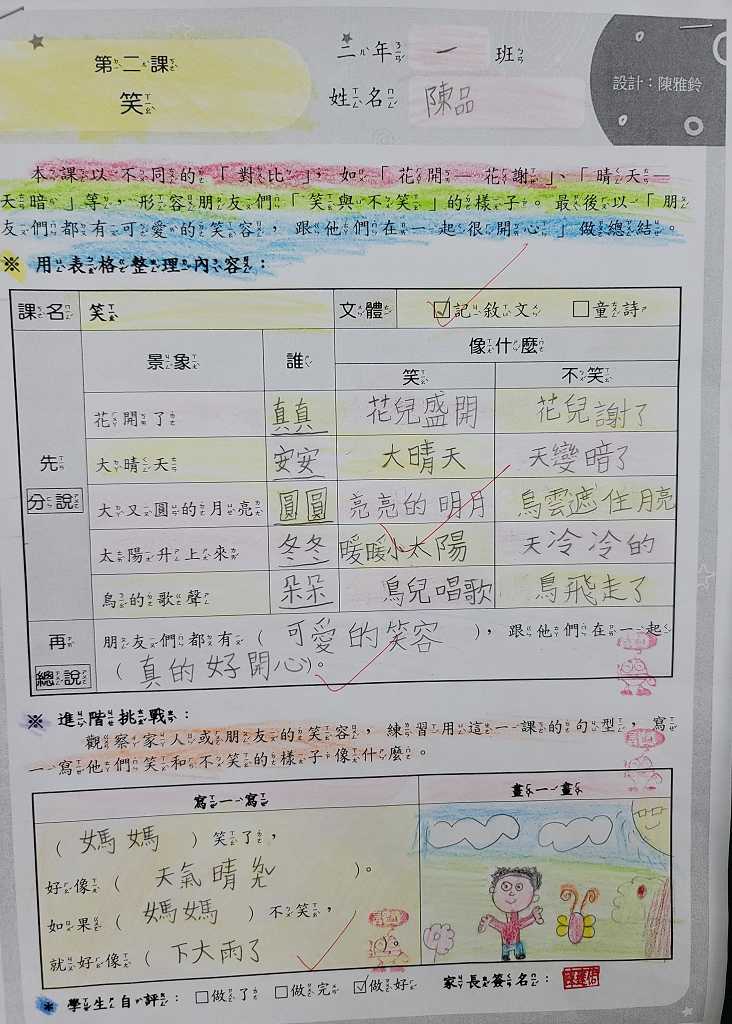 第二課
笑
二年一班
姓名 陳品
設計：陳雅鈴
本課以不同的「對比」，如「花開—花謝」、「晴天—
天暗」等，形容朋友們「笑與不笑」的樣子。最後以「朋
友們都有可愛的笑容，跟他們在一起很開心」做總結。
※ 用表格整理內容：
課名 笑 文體 ☑記敘文 □童詩
景象 誰 像什麼
笑 不笑
先
分說
花開了 真真 花兒盛開 花兒謝了
大晴天 安安 大晴天 天變暗了
大又圓的月亮 圓圓 亮亮的明月 烏雲遮住月亮
太陽升上來 冬冬 暖暖小太陽 天冷冷的
鳥的歌聲 朵朵 鳥兒唱歌 鳥飛走了
再
總說
朋友們都有（可愛的笑容），跟他們在一起
（真的好開心）。
※ 進階挑戰：
觀察家人或朋友的笑容，練習用這一課的句型，寫
一寫他們笑和不笑的樣子像什麼。
寫一寫 畫一畫
（媽媽）笑了，
好像（天氣晴）。
如果（媽媽）不笑，
就好像（下大雨了
＊ 學生自評：□做了 □做完 ☑做好 家長簽名：